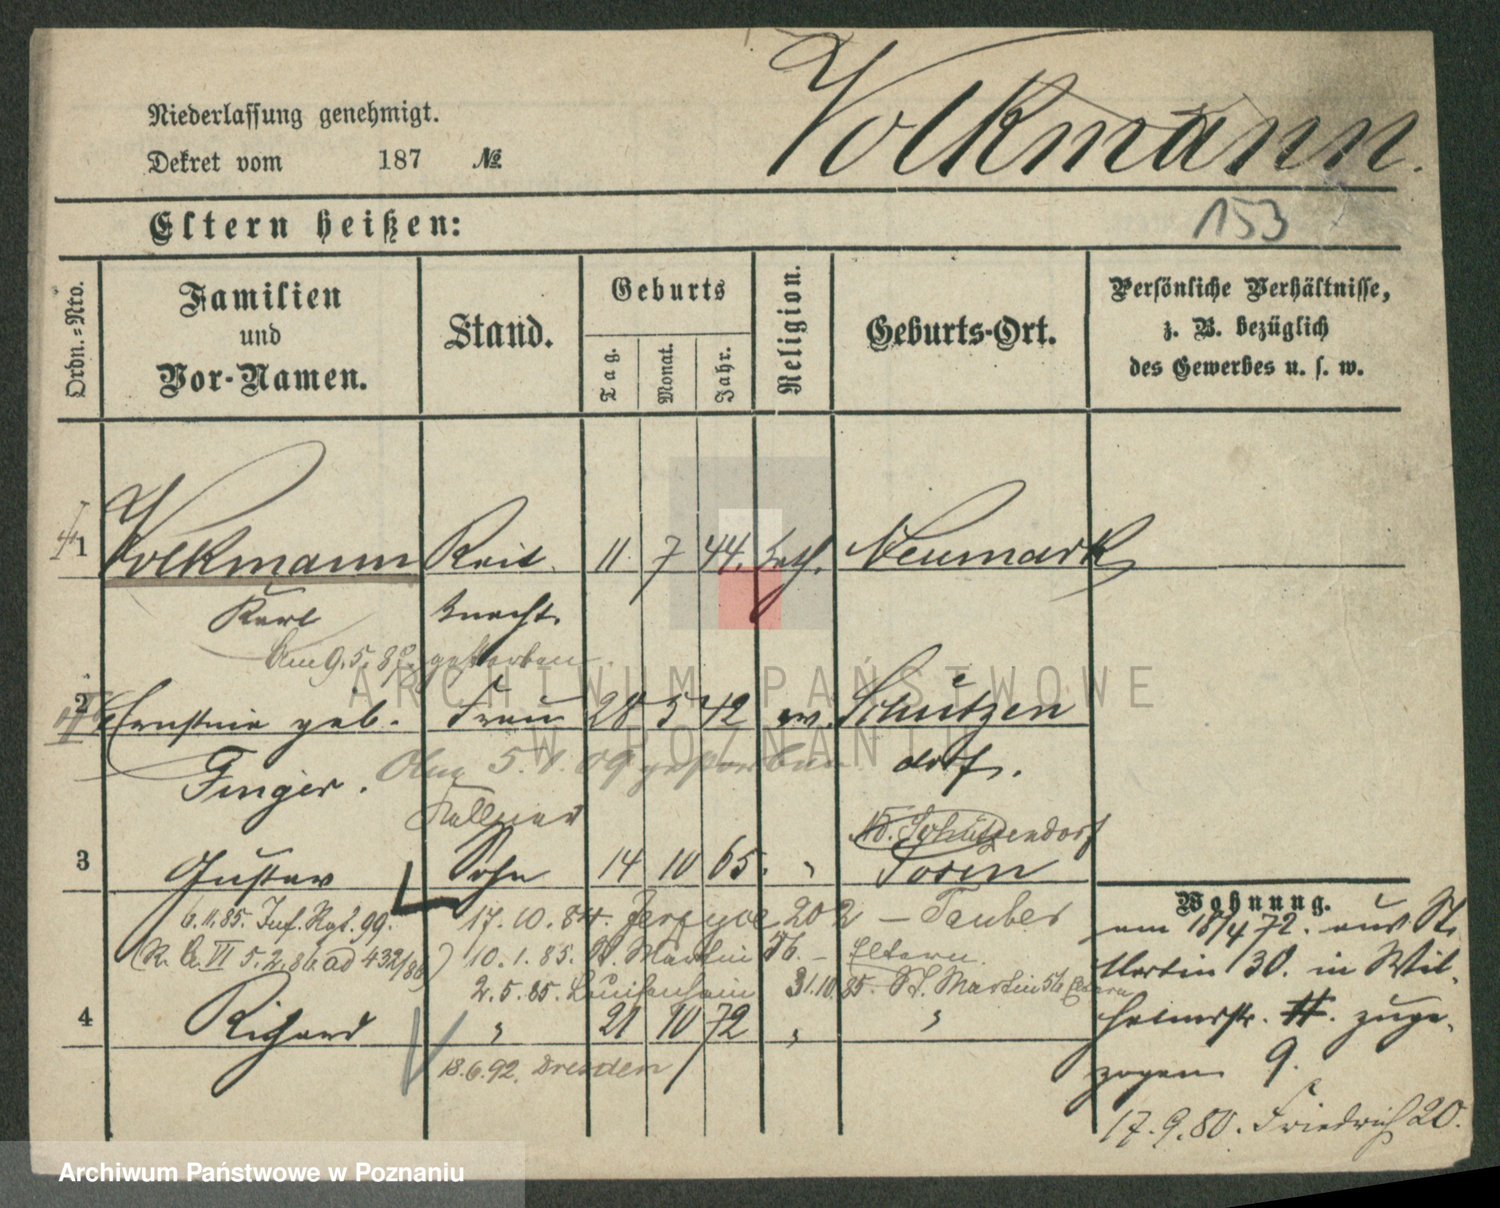 Volkmann.
Niederlassung genehmigt.
Dekret vom 187 №
153
Eltern heißen:
Ordn.-Nro.
Familien und Vor-Namen.
Stand.
Geburts
Tag.
Monat.
Jahr.
Religion.
Geburts-Ort.
Persönliche Verhältnisse,
z. B. bezüglich
des Gewerbes u. s. w.
1 Volkmann Reit 11. 7 44. kath. Neumark
Karl knecht.
Am 9.5. gestorben.
2 Ernstine geb. Frau 28 5 42 ev. Schützen
Finger. dorf.
Am 5. 09 gestorben
Kellner
N. Schützendorf
3 Gustav Sohn 14 10 65. " Posen
6.11.85. Inf. Rgt. 99. 17.10.84. 202 – Tauber
(K. A. VI 5.2.86 ad 432/86) 10.1.85. St. Martin 56. – Eltern.
2.5.85. 31.10.85. St. Martin 56 Eltern
4 Richard " 21 10 72 " "
18.6.92. Dresden
Wohnung.
am 18/4 72. aus St.
Martin 30. in Wil-
helmstr. zuge-
zogen 9.
17.9.80. Friedrich 20.
ARCHIWUM PAŃSTWOWE
W POZNANIU
Archiwum Państwowe w Poznaniu